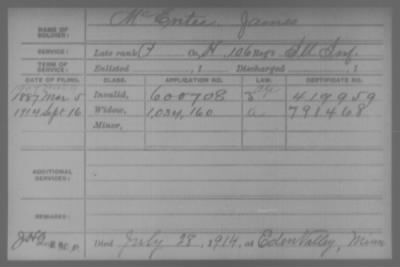 NAME OF SOLDIER: McEntee James
SERVICE: Late rank F Co. H, 106 Reg't Ill. Inf.
TERM OF SERVICE: Enlisted , 1 Discharged , 1
DATE OF FILING. CLASS. APPLICATION NO. LAW. CERTIFICATE NO.
1887 Mar 5 Invalid, 600708 419959
1914 Sept 16 Widow, 1,034,160 a 798468
Minor,
ADDITIONAL SERVICES:
REMARKS:
Died July 28, 1914, at Eden Valley, Minn